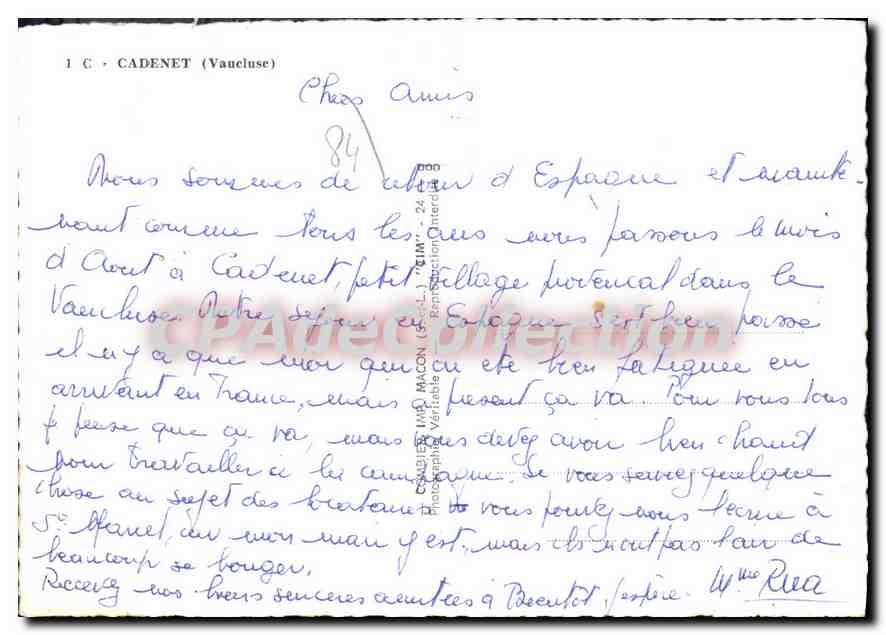 1 C - CADENET (Vaucluse)
Chers Amis
84
Nous sommes de retour d'Espagne et mainte-
nant comme tous les ans nous passons le mois
d'Aout à Cadenet, petit village provencal dans le
Vaucluse. Notre sejour en Espagne s'est bien passé
il n'y a que moi qui ai été bien fatiguée en
arrivant en France, mais a present ça va. Pour vous tous
je pense que ça va, mais vous devez avoir bien chaud
pour travailler à la campagne. Si vous saviez quelque
chose au sujet des locataires vous pouvez nous l'ecrire à
St Manet, car mon mari y est, mais ils n'ont pas l'air de
beaucoup se bouger.
Recevez nos biens sinceres amitiées à Bientot j'espère. Mme Rua
COMBIER IMP. MACON (S.-et-L.) "CIM" - 24
Photographie Véritable - Reproduction Interdite
CPAdeCollection